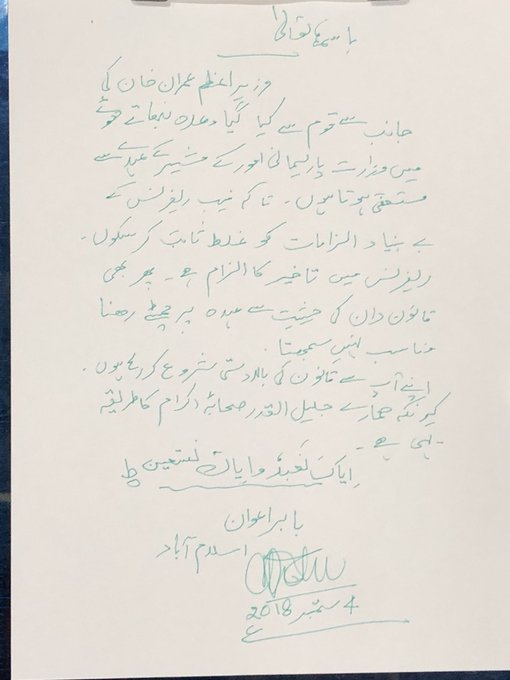 باسمہ تعالیٰ
وزیر اعظم عمران خان کی
جانب سے قوم سے کیا گیا وعدہ نبھاتے ہوئے
میں وزارت پارلیمانی امور کے مشیر کے عہدے سے
مستعفی ہوتا ہوں۔ تاکہ نیب ریفرنس کے
بے بنیاد الزامات کو غلط ثابت کر سکوں۔
ریفرنس میں تاخیر کا الزام ہے۔ پھر بھی
قانون دان کی حیثیت سے عہدہ پر چمٹے رہنا
مناسب نہیں سمجھتا۔
اپنے آپ سے قانون کی بالادستی شروع کر رہا ہوں۔
کیونکہ ہمارے جلیل القدر صحابہ اکرام کا طریقہ
یہی ہے۔
ایاک نعبد و ایاک نستعین ط
بابر اعوان
اسلام آباد
4 ستمبر 2018 ء